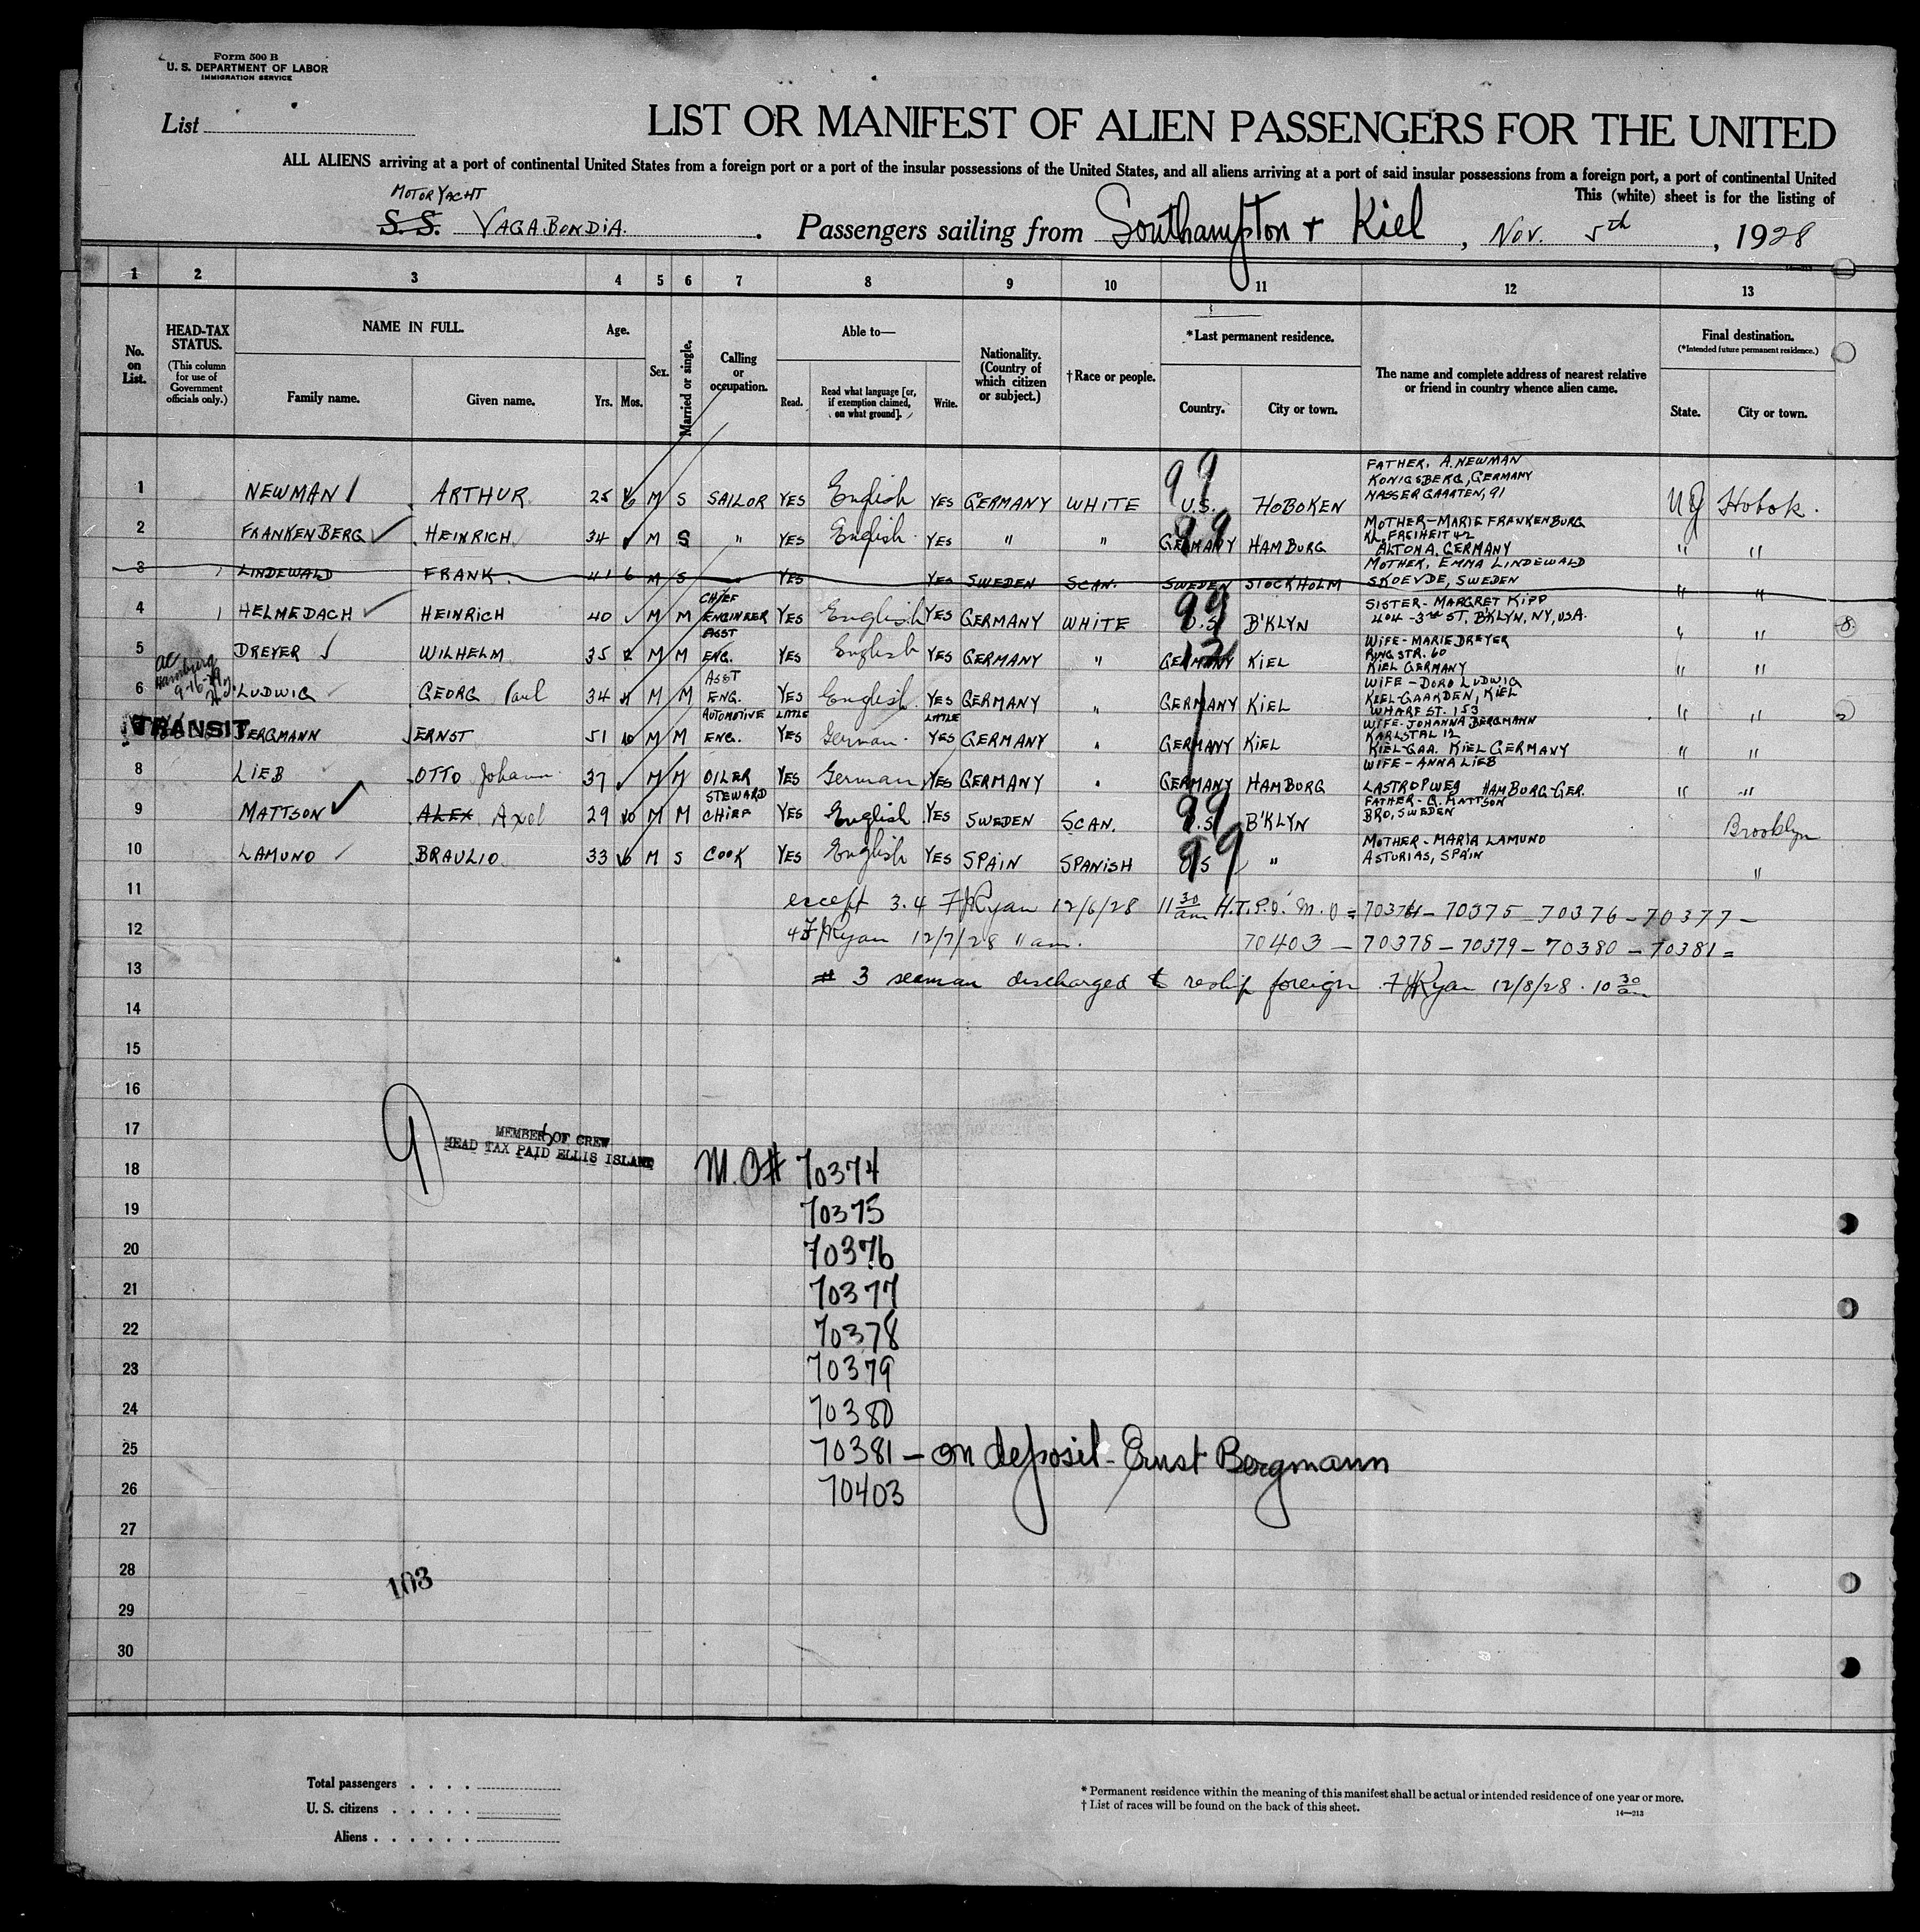 Form 500 B
U. S. DEPARTMENT OF LABOR
IMMIGRATION SERVICE
List
LIST OR MANIFEST OF ALIEN PASSENGERS FOR THE UNITED
ALL ALIENS arriving at a port of continental United States from a foreign port or a port of the insular possessions of the United States, and all aliens arriving at a port of said insular possessions from a foreign port, a port of continental United
This (white) sheet is for the listing of
MOTOR YACHT
S. S. VAGABONDIA. Passengers sailing from Southampton + Kiel, Nov. 5th, 1928
1 2 3 4 5 6 7 8 9 10 11 12 13
No. on List.
HEAD-TAX STATUS.
(This column for use of Government officials only.)
NAME IN FULL.
Family name. Given name.
Age.
Yrs. Mos.
Sex.
Married or single.
Calling or occupation.
Able to—
Read. Read what language [or, if exemption claimed, on what ground]. Write.
Nationality. (Country of which citizen or subject.)
†Race or people.
*Last permanent residence.
Country. City or town.
The name and complete address of nearest relative or friend in country whence alien came.
Final destination.
(*Intended future permanent residence.)
State. City or town.
1 NEWMAN ARTHUR 25 6 M S SAILOR YES English YES GERMANY WHITE U.S. 99 HOBOKEN FATHER, A. NEWMAN KONIGSBERG, GERMANY NJ Hobok.
2 FRANKENBERG HEINRICH 34 M S " YES English YES " " GERMANY 99 HAMBURG MOTHER-MARIE FRANKENBURG KL. FREIHEIT 42 ALTONA, GERMANY " "
3 LINDEWALD FRANK. 41 6 M S YES YES SWEDEN SCAN. SWEDEN STOCKHOLM MOTHER, EMMA LINDEWALD SKOEVDE, SWEDEN " "
4 HELMEDACH HEINRICH 40 M M CHIEF ENGINEER YES English YES GERMANY WHITE U.S. 99 B'KLYN SISTER-MARGRET KIPP 404-3rd ST. B'KLYN, NY, USA. " "
5 DREYER WILHELM 35 M M ASST ENG. YES English YES GERMANY " GERMANY 12 KIEL WIFE-MARIE DREYER RING STR. 60 KIEL GERMANY " "
6 LUDWIG GEORG Paul 34 M M ASST ENG. YES English YES GERMANY " GERMANY KIEL WIFE-DORO LUDWIG KIEL-GAARDEN, KIEL WHARF ST. 153 " "
TRANSIT BERGMANN ERNST 51 10 M M AUTOMOTIVE ENG. LITTLE YES German LITTLE YES GERMANY " GERMANY KIEL WIFE-JOHANNA BERGMANN KARLSTAL 12 KIEL-GAA. KIEL GERMANY " "
8 LIEB OTTO Johann 37 M M OILER YES German YES GERMANY " GERMANY HAMBURG WIFE-ANNA LIEB LASTROPWEG HAMBURG-GER. " "
9 MATTSON ALEX Axel 29 10 M M STEWARD CHIEF YES English YES SWEDEN SCAN. U.S. 99 B'KLYN FATHER-Q. MATTSON BRO, SWEDEN Brooklyn
10 LAMUNO BRAULIO 33 6 M S COOK YES English YES SPAIN SPANISH U.S 99 " MOTHER-MARIA LAMUNO ASTURIAS, SPAIN "
11 except 3.4 F J Ryan 12/6/28 11 30 am H.T.P.O. M.O = 70374 - 70375 - 70376 - 70377 -
12 4 F J Ryan 12/7/28 11 am. 70403 - 70378 - 70379 - 70380 - 70381 =
13 # 3 seaman discharged to reship foreign F J Ryan 12/8/28. 10 30 am
14
15
16
17 9 MEMBERS OF CREW
HEAD TAX PAID ELLIS ISLAND
18 M.O# 70374
19 70375
20 70376
21 70377
22 70378
23 70379
24 70380
25 70381 - on deposit - Ernst Bergmann
26 70403
27
28 103
29
30
Total passengers
U. S. citizens
Aliens
* Permanent residence within the meaning of this manifest shall be actual or intended residence of one year or more.
† List of races will be found on the back of this sheet.
14—213